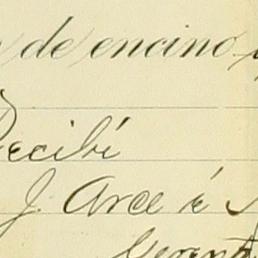 de encino
Recibí
J. Arce é